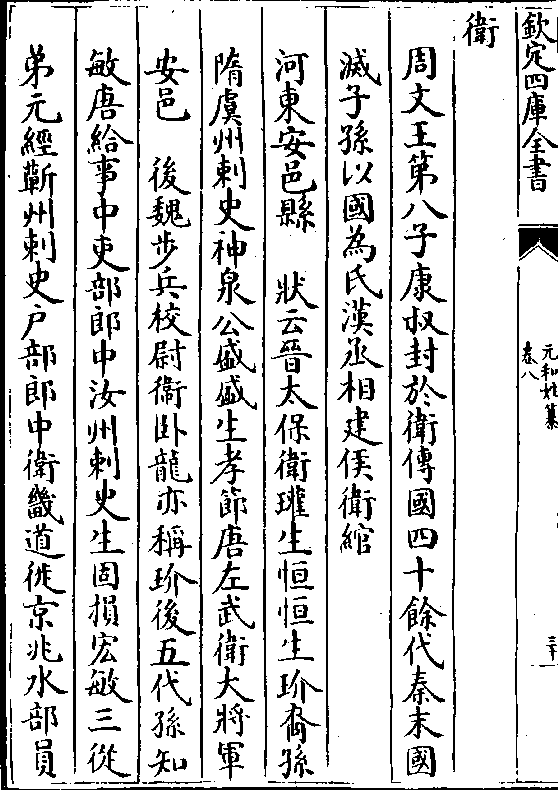 欽定四庫全書
元和姓纂
卷八
三十一
衛
周文王第八子康叔封於衛傳國四十餘代秦末國
滅子孫以國為氏漢丞相建侯衛綰
河東安邑縣　狀云晉太保衛瓘生恒恒生玠裔孫
隋虞州刺史神泉公盛盛生孝節唐左武衛大將軍
安邑　後魏步兵校尉衛卧龍亦稱玠後五代孫知
敏唐給事中吏部郎中汝州刺史生固損宏敏三從
弟元經蘄州刺史户部郎中衛畿道徙京兆水部員